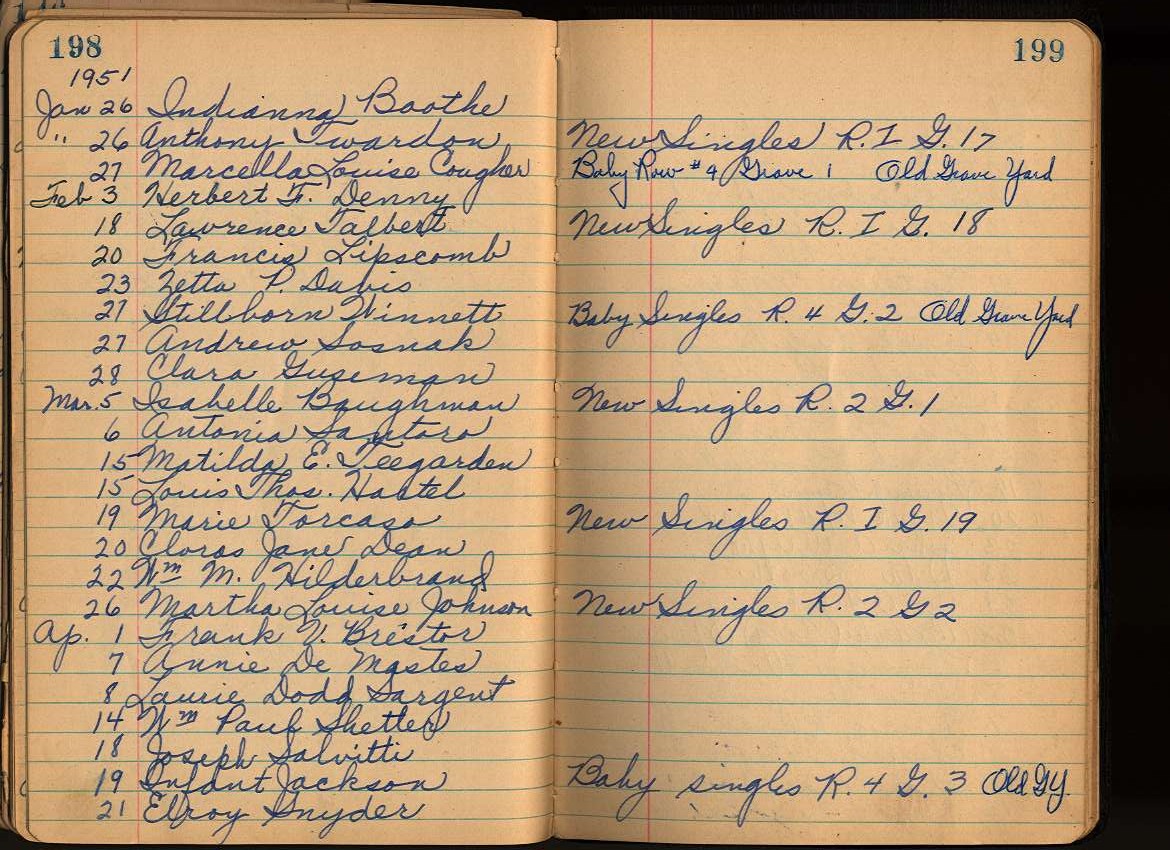 198
199
1951
Jan 26 Indianna Boothe
" 26 Anthony Twardon New Singles R. I G. 17
27 Marcella Louise Cougher Baby Row #4 Grave 1 Old Grave Yard
Feb 3 Herbert F. Denny
18 Lawrence Talbert New Singles R. I G. 18
20 Francis Lipscomb
23 Zetta P. Davis
27 Stillborn Winnett Baby Singles R. 4 G. 2 Old Grave Yard
27 Andrew Sosnak
28 Clara Guseman
Mar. 5 Isabelle Baughman New Singles R. 2 G. 1
6 Antonia Santoro
15 Matilda E. Teegarden
15 Louis Thos. Hartel
19 Marie Torcaso New Singles R. I G. 19
20 Cloras Jane Dean
22 Wm M. Hilderbrand
26 Martha Louise Johnson New Singles R. 2 G 2
Ap. 1 Frank V. Brestor
7 Annie De Mastes
8 Laurie Dodd Sargent
14 Wm Paul Shetler
18 Joseph Salvitti
19 Infant Jackson Baby singles R. 4 G. 3 Old G Y.
21 Elroy Snyder